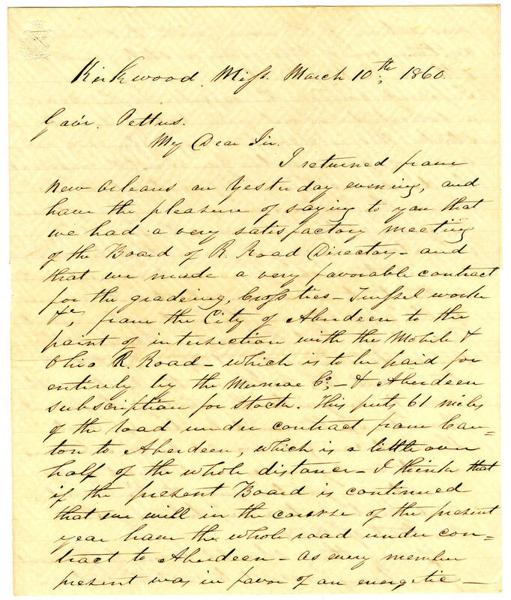 Kirkwood, Miss. March 10th, 1860.
Gov'r. Pettus.
My Dear Sir.
I returned from
New Orleans on yesterday evening, and
have the pleasure of saying to you that
we had a very satisfactory meeting
of the Board of R. Road Directory - and
that we made a very favorable contract
for the gradeing, Cross ties - Tressel work
&c, from the City of Aberdeen to the
point of intersection with the Mobile &
Ohio R. Road - which is to be paid for
entirely by the Monroe Co. - & Aberdeen
subscription for stock. This puts 61 miles
of the road under contract from Can-
ton to Aberdeen, which is a little over
half of the whole distance - I think that
if the present Board is continued
that we will in the course of the present
year have the whole road under con-
tract to Aberdeen - as every member
present was in favor of an energetic -